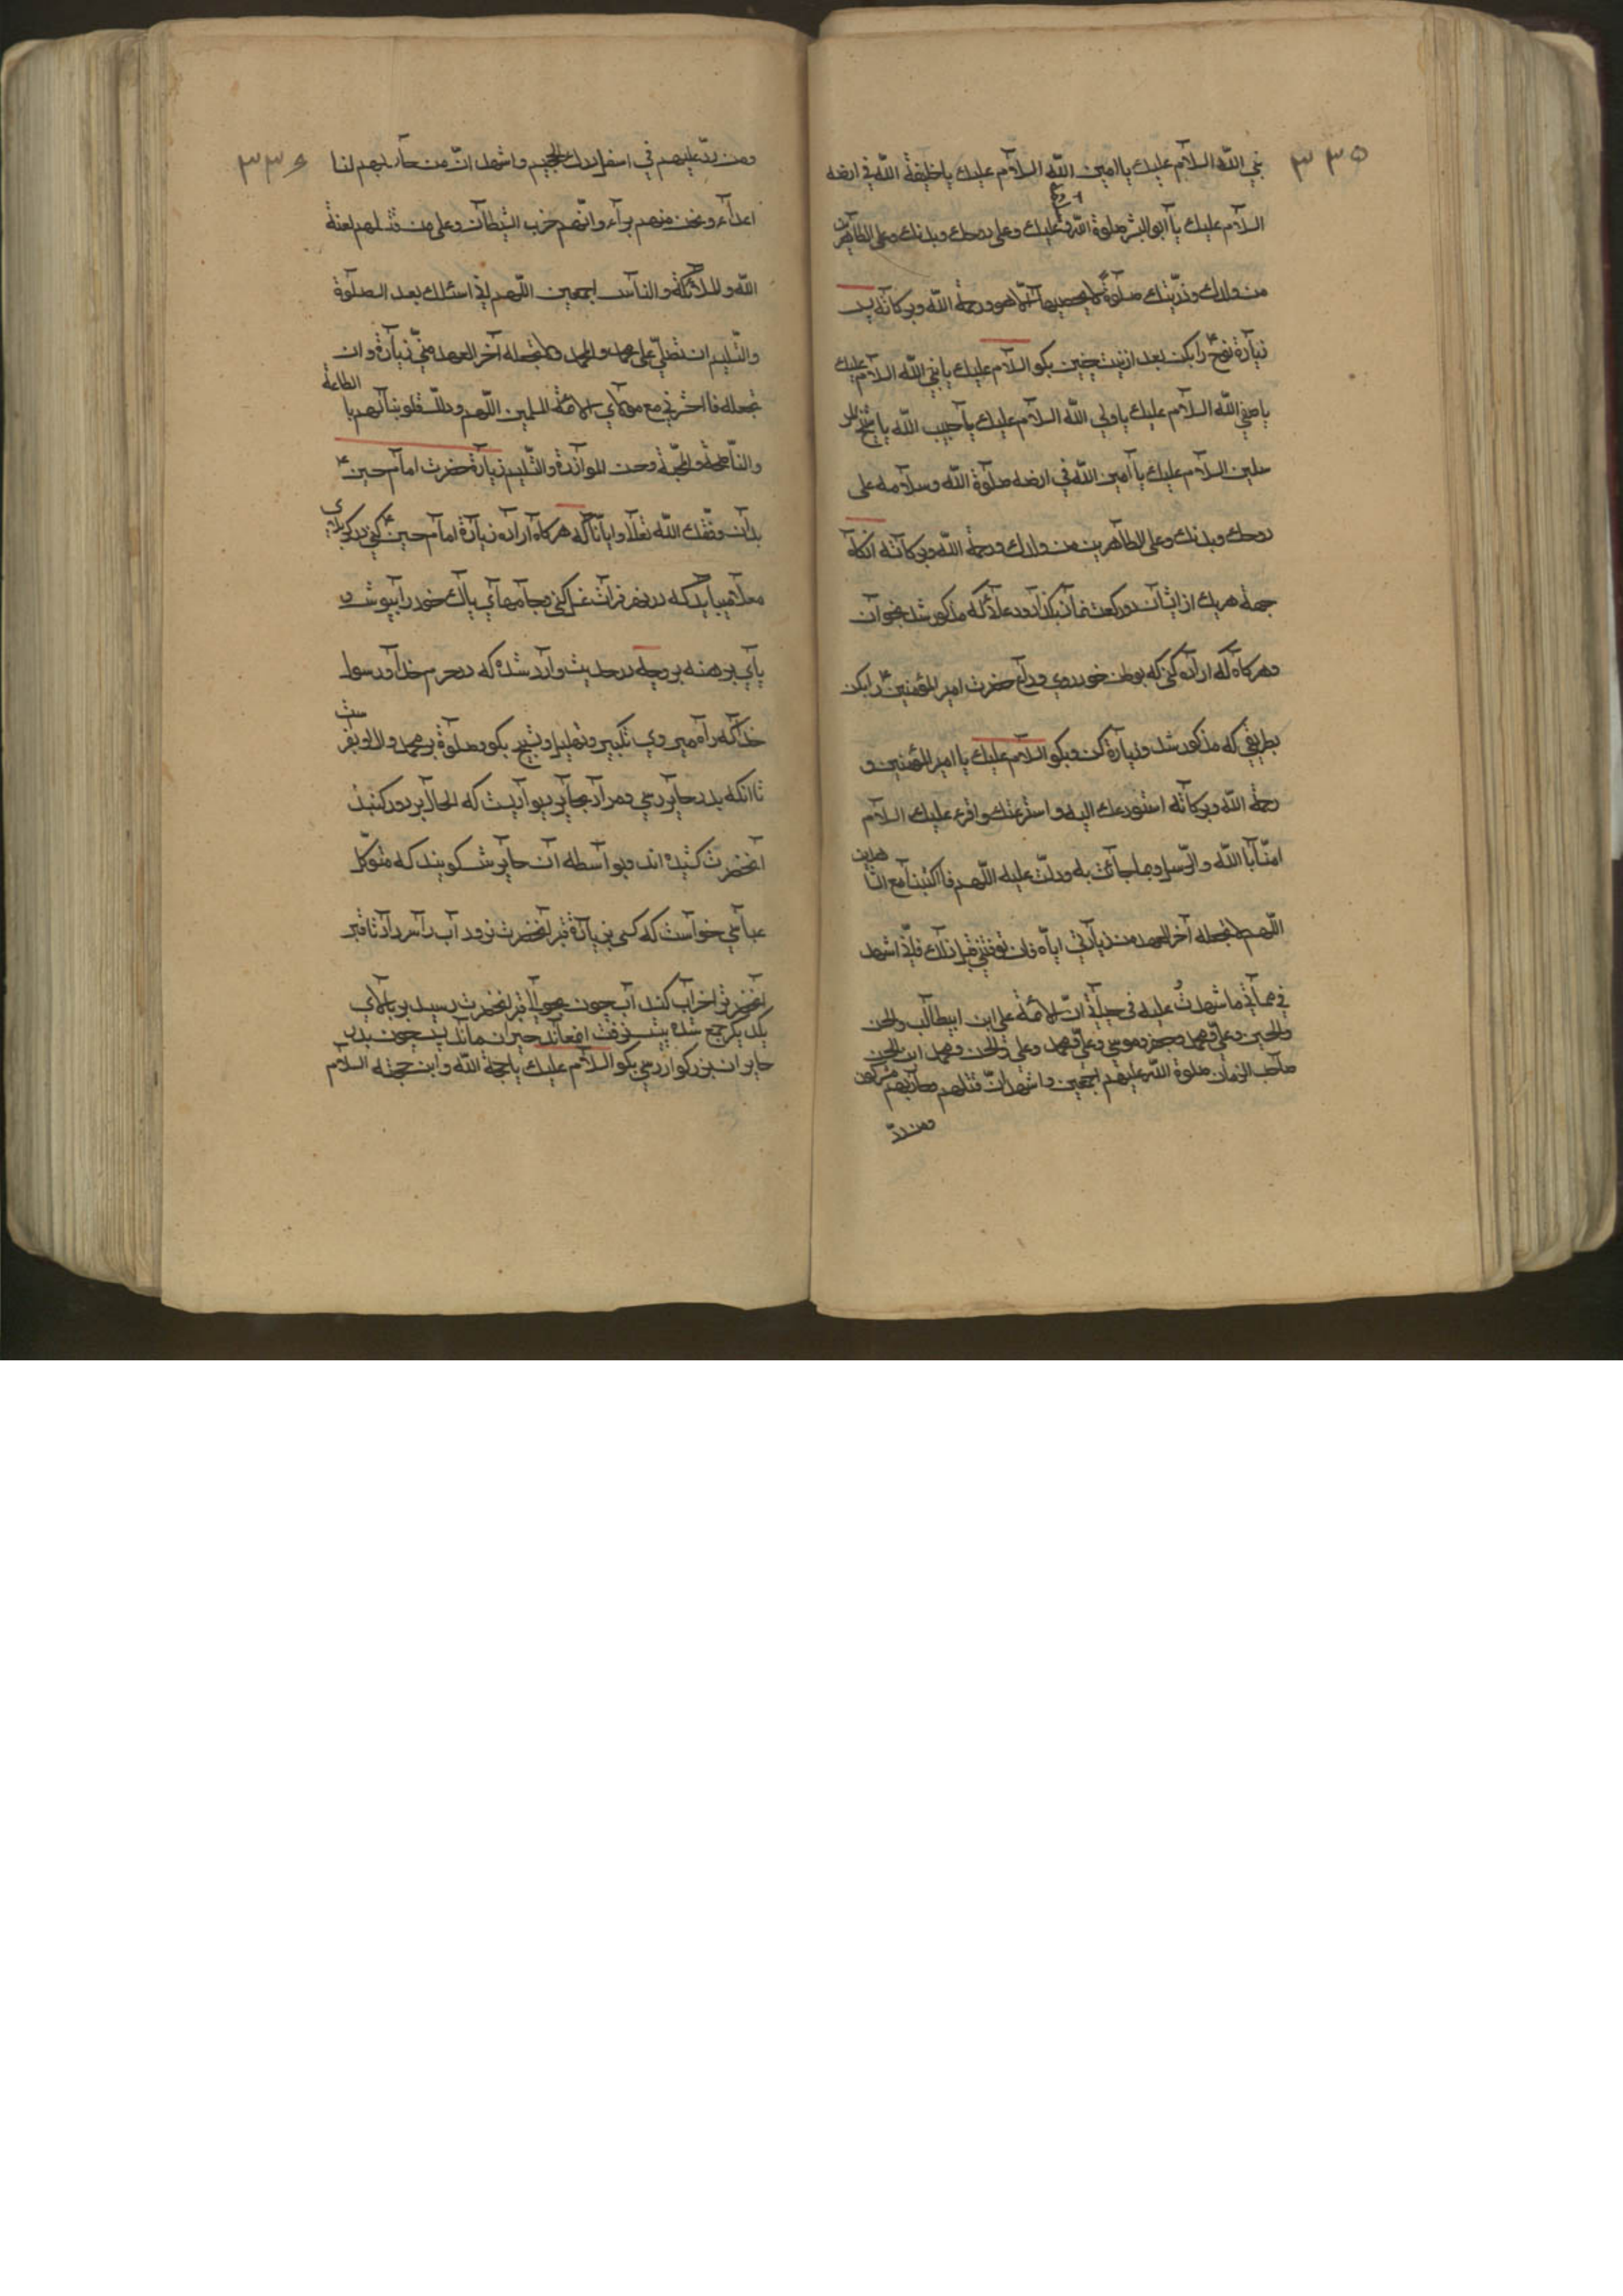 ٣٣٥
نبي الله السلام عليك يا امين الله السلام عليك يا خليفة الله في ارضه
السلام عليك يا ابو البشر صلوة الله عليك وعلى روحك وبدنك وعلى الطاهرين
من ولدك وذريتك صلوة لا يحصيها الا هو ورحمة الله وبركاته پس
زيارة نوح ع را بكن بعد از نيت چنين بكو السلام عليك يا نبي الله السلام عليك
يا صفي الله السلام عليك يا ولي الله السلام عليك يا حبيب الله يا شيخ المر
سلين السلام عليك يا امين الله في ارضه صلوة الله وسلامه على
روحك وبدنك وعلى الطاهرين من ولدك ورحمة الله وبركاته انكاه
جهة هر يك از ايشان دو ركعت نماز بكذار ودعا كه مذكور شد بخوان
وهركاه كه اراده كني كه بوطن خود روي وداع حضرت امير المؤمنين ع را بكن
بطريقي كه مذكور شد وزيارة كن وبكو السلام عليك يا امير المؤمنين و
رحمة الله وبركاته استودعك الله واسترعيك واقرء عليك السلام
امنا بالله والرسل وبما جائت به ودلت عليه اللهم فاكتبنا مع الشاهدين
اللهم لا تجعله آخر العهد من زيارتي اياه فان توفيتني قبل ذلك فاني اشهد
في مماتي ما شهدت عليه في حياتي ان الائمة علي ابن ابيطالب والحسن
والحسين وعلي ومحمد وجعفر وموسى وعلي ومحمد وعلي والحسن ومحمد ابن الحسن
صاحب الزمان صلوة الله عليهم اجمعين واشهد ان قتلهم وحاربهم مشركون
ومن رد
٣٣٦
ومن رد عليهم في اسفل درك الجحيم واشهد ان من حاربهم لنا
اعداء ونحن منهم براء وانهم حزب الشيطان وعلى من قتلهم لعنة
الله والملائكة والناس اجمعين اللهم اني اسئلك بعد الصلوة
والتسليم ان تصلي على محمد وال محمد ولا تجعله آخر العهد مني زيارة وان
تجعله فاحشرني مع مولاي الائمة المسلمين اللهم وذلل قلوبنا لهم با الطاعة
والناصحة والمحبة وحسن الموازرة والتسليم زيارة حضرت امام حسين ع
بدان وفقك الله تعالا وايانا كه هركاه اراده زيارة امام حسين ع كني در كربلاي
معلا ميبايد كه در نهر فرات غسل كني وجامهاي پاك خود را بپوش و
پاي برهنه برو چه در حديث وارد شده كه در حرم خدا ورسول
خدا كه راه ميروي تكبير وتهليل وتسبيح بكو وصلوة بر محمد وال او بفرست
تا انكه بدر حاير رسي ومراد بحاير ديواريست كه الحال بر دور كنبد
آنحضرت كشيده اند وبواسطه آن حايرش كويند كه متوكل
عباسي خواست كه كسي بزيارة قبر آنحضرت نرود آب را سر داد تا قبر
آنحضرت را خراب كند آب چون بحوالي قبر آنحضرت رسيد بر بالاي
يكديكر جمع شده پيش نرفت حيران ماند پس چون بدر
حاير ان بزركوار رسي بكو السلام عليك يا حجة الله وابن حجته السلام